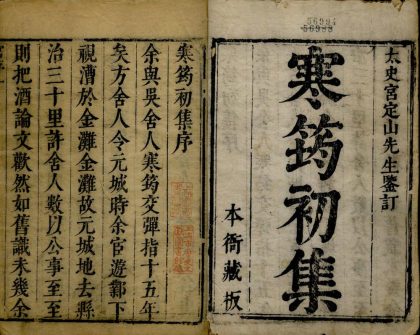 56994
56988
太史宮定山先生鑒訂
寒筠初集
本衙藏板
寒筠初集序
余與吳舍人寒筠交彈指十五年
矣方舍人令元城時余官遊鄴下
視漕於金灘金灘故元城地去縣
治三十里許舍人數以公事至至
則把酒論文歡然如舊識未幾余